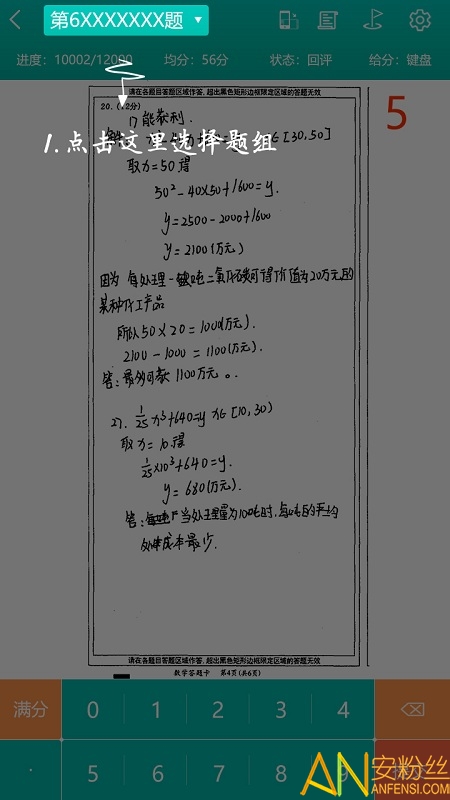 第6XXXXXXX题
进度：10002/12000 均分：56分 状态：回评 给分：键盘
请在各题目答题区域作答，超出黑色矩形边框限定区域的答题无效
5
20.（12分）
1.点击这里选择题组
1) 能获利.
[30,50]
取x=50得
50²-40×50+1600=y.
y=2500-2000+1600
y=2100(万元)
因为 每处理一吨二氧化碳可得价值为20万元的
某种化工产品
所以50×20=1000(万元).
2100-1000=1100(万元).
答: 最多可获1100万元。
27. 1/25 x³+640=y x∈[10,30)
取x=10.得
1/25×10³+640=y.
y=680(万元).
答: 当处理量为100吨时,每吨的平均
处理成本最少.
请在各题目答题区域作答，超出黑色矩形边框限定区域的答题无效
数学答题卡 第4页(共6页)
满分 0 1 2 3 4
. 5 6 7 8 9 提交
AN 安粉丝
ANFENSI.COM